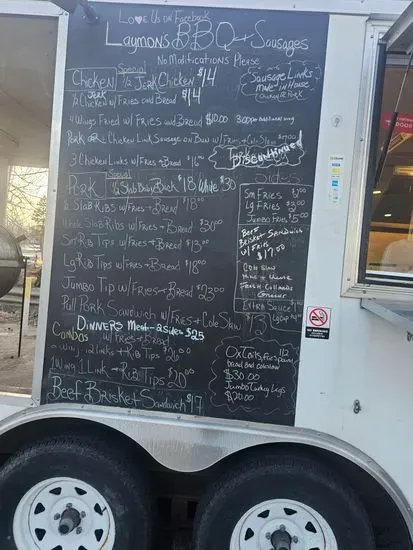 Love Us on Facebook
Laymons BBQ + Sausages
No Modifications Please
Chicken
Special
1/2 Jerk Chicken $14
Jerk
1/2 Chicken w/Fries and Bread $14
Sausage Links
made in House
Chicken or Pork
4 Wings Fried w/Fries and Bread $10.00
Pork or Chicken Link Sausage on Bun w/Fries + Cole Slaw
3 Chicken Links w/Fries + Bread
Discontinued
Pork
Special
1/2 Slab Baby Back $18 Whole $30
1/2 Slab Ribs w/Fries + Bread $18.00
Whole Slab Ribs w/Fries + Bread
Sm Rib Tips w/Fries + Bread
Lg Rib Tips w/Fries + Bread $18.00
Jumbo Tip w/Fries + Bread $23.00
Pull Pork Sandwich w/Fries + Cole Slaw $13
Sides
Sm Fries
Lg Fries
Jumbo Fries $5.00
Beef
Brisket Sandwich
w/Fries
$17.00
Cole Slaw
Mac + Cheese
Fresh Collards
Greens
Extra Sauce
Dinners Meat + 2 sides $25
Combos w/Fries + Bread
2 Links + Rib Tips
1 Wing 1 Link + Rib Tips $20.00
Beef Brisket Sandwich $17
Ox Tails
bread and coleslaw
$30.00
Jumbo Turkey Legs
$20.00